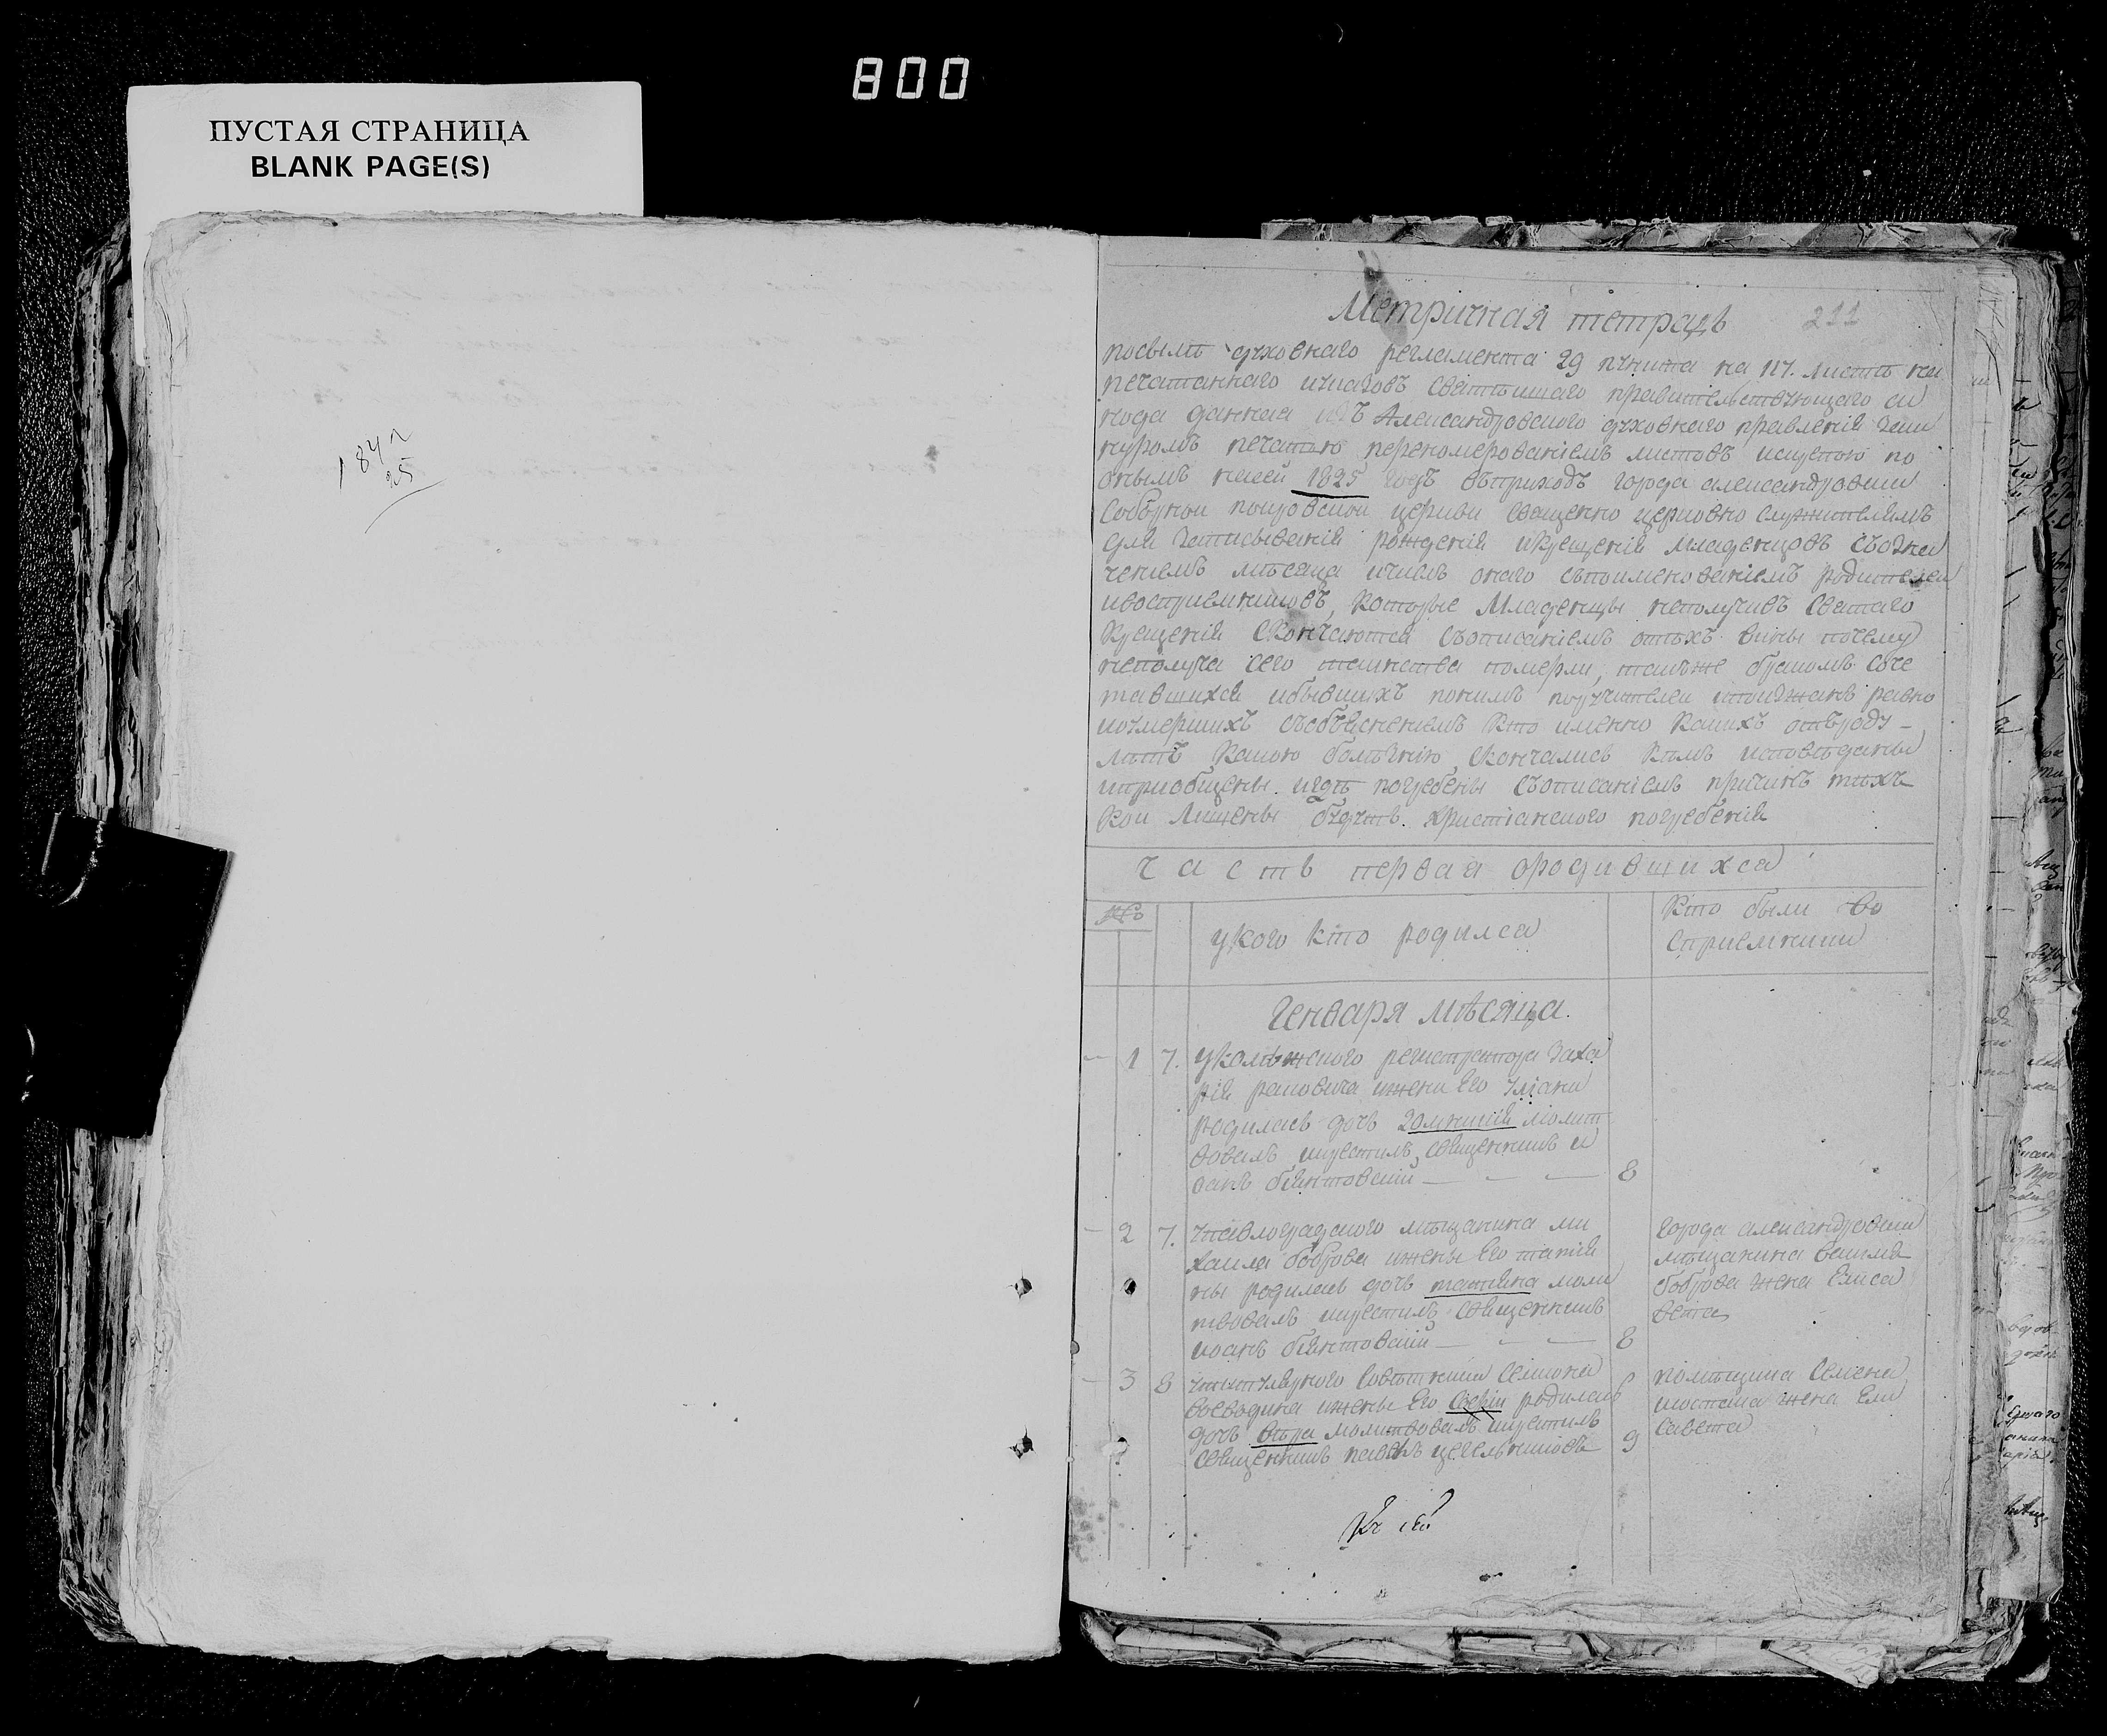 800
ПУСТАЯ СТРАНИЦА
BLANK PAGE(S)
184
25
Метричная тетрадь
211
духовнаго регламента 29 пункта на 117. листѣ
печатаннаго святѣйшаго правительствующаго си
нода данная изъ Александровского духовнаго правления
печатью перенумерованіемъ листовъ по
онымъ 1825 годъ въ приходъ города александровки
соборной покровской церкви священно церковно служителямъ
для записыванія рожденія икрещенія младенцовъ
ченіемъ мѣсяца ичислъ онаго съпоименованіемъ родителей
ивосприемниковъ, которые Младенцы неполучивъ святаго
крещенія скончаются съописаніемъ отъхъ вины почему
неполуча сего таинства померли, такъже бракомъ соче
тавшихся ибывшихъ понимъ поручителей равно
иумершихъ съобъясненіемъ кто именно какихъ отъроду
лѣтъ какою болѣзнію скончались кѣмъ исповѣданы
иприобщены игдѣ погребены съописаніемъ причинъ тѣхъ
кои лишены будутъ христіанского погребенія
часть первая ородившихса
№
укого кто родилса
кто были во
сприемники
Генваря мѣсяца.
1 7. уколѣжского регистратора Заха
рія раковича ижены его
родилась дочь молит
вовалъ икрестилъ священникъ и
оанъ 8
2 7. упавлоградского мѣщанина ми
хаила боброва ижены его татія
ны родилась дочь татіана моли
твовалъ икрестилъ священникъ
иоанъ 8
города александровки
мѣщанина
боброва жена елиса
вета
3 8 утитулярного совѣтника семиона
воеводина ижены его софіи родилась
дочь вѣра молитвовалъ икрестилъ
священникъ павелъ 9
помѣщика семена
жена ели
савета